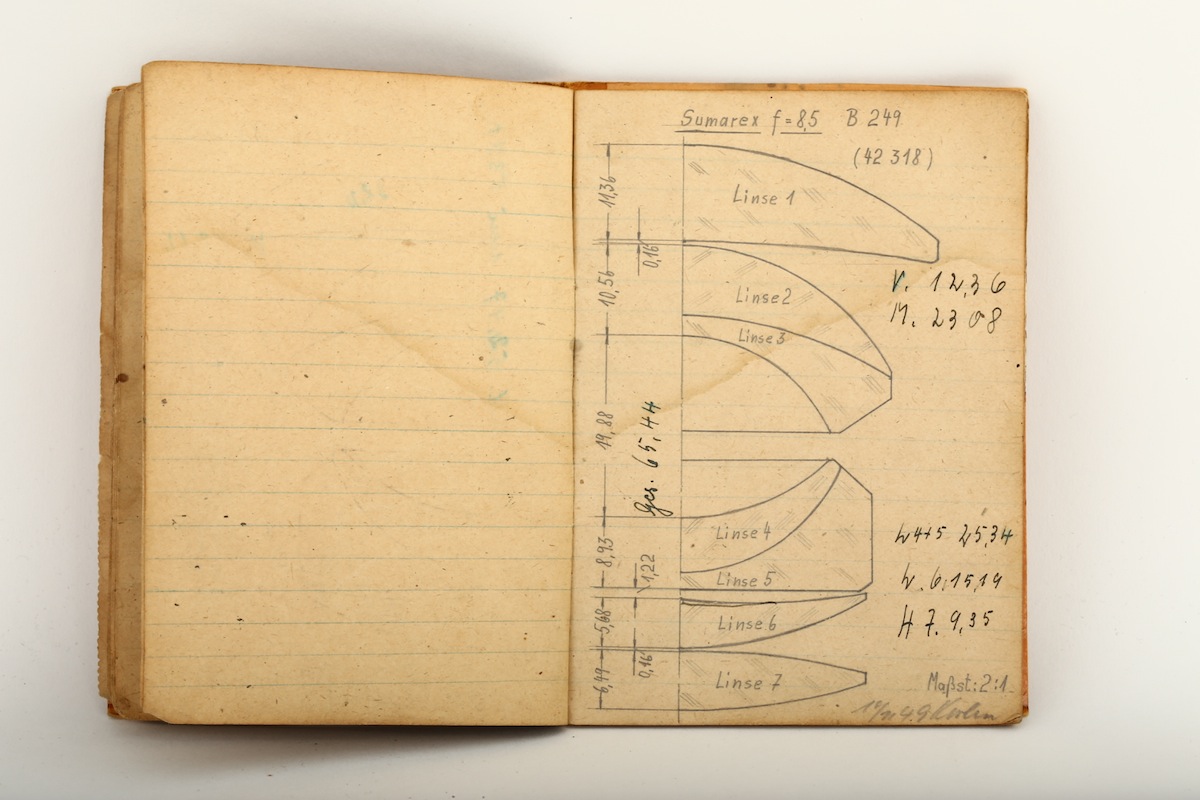 Sumarex f = 8,5 B 249
(42 318)
11,36
Linse 1
0,16
10,56
Linse 2
V. 12,36
M. 23 08
Linse 3
19,88
Ges. 65,44
Linse 4
L 4+5 25,34
8,93
1,22
Linse 5
L. 6, 15,19
5,68
Linse 6
H 7. 9,35
0,16
6,49
Linse 7
Maßst: 2:1